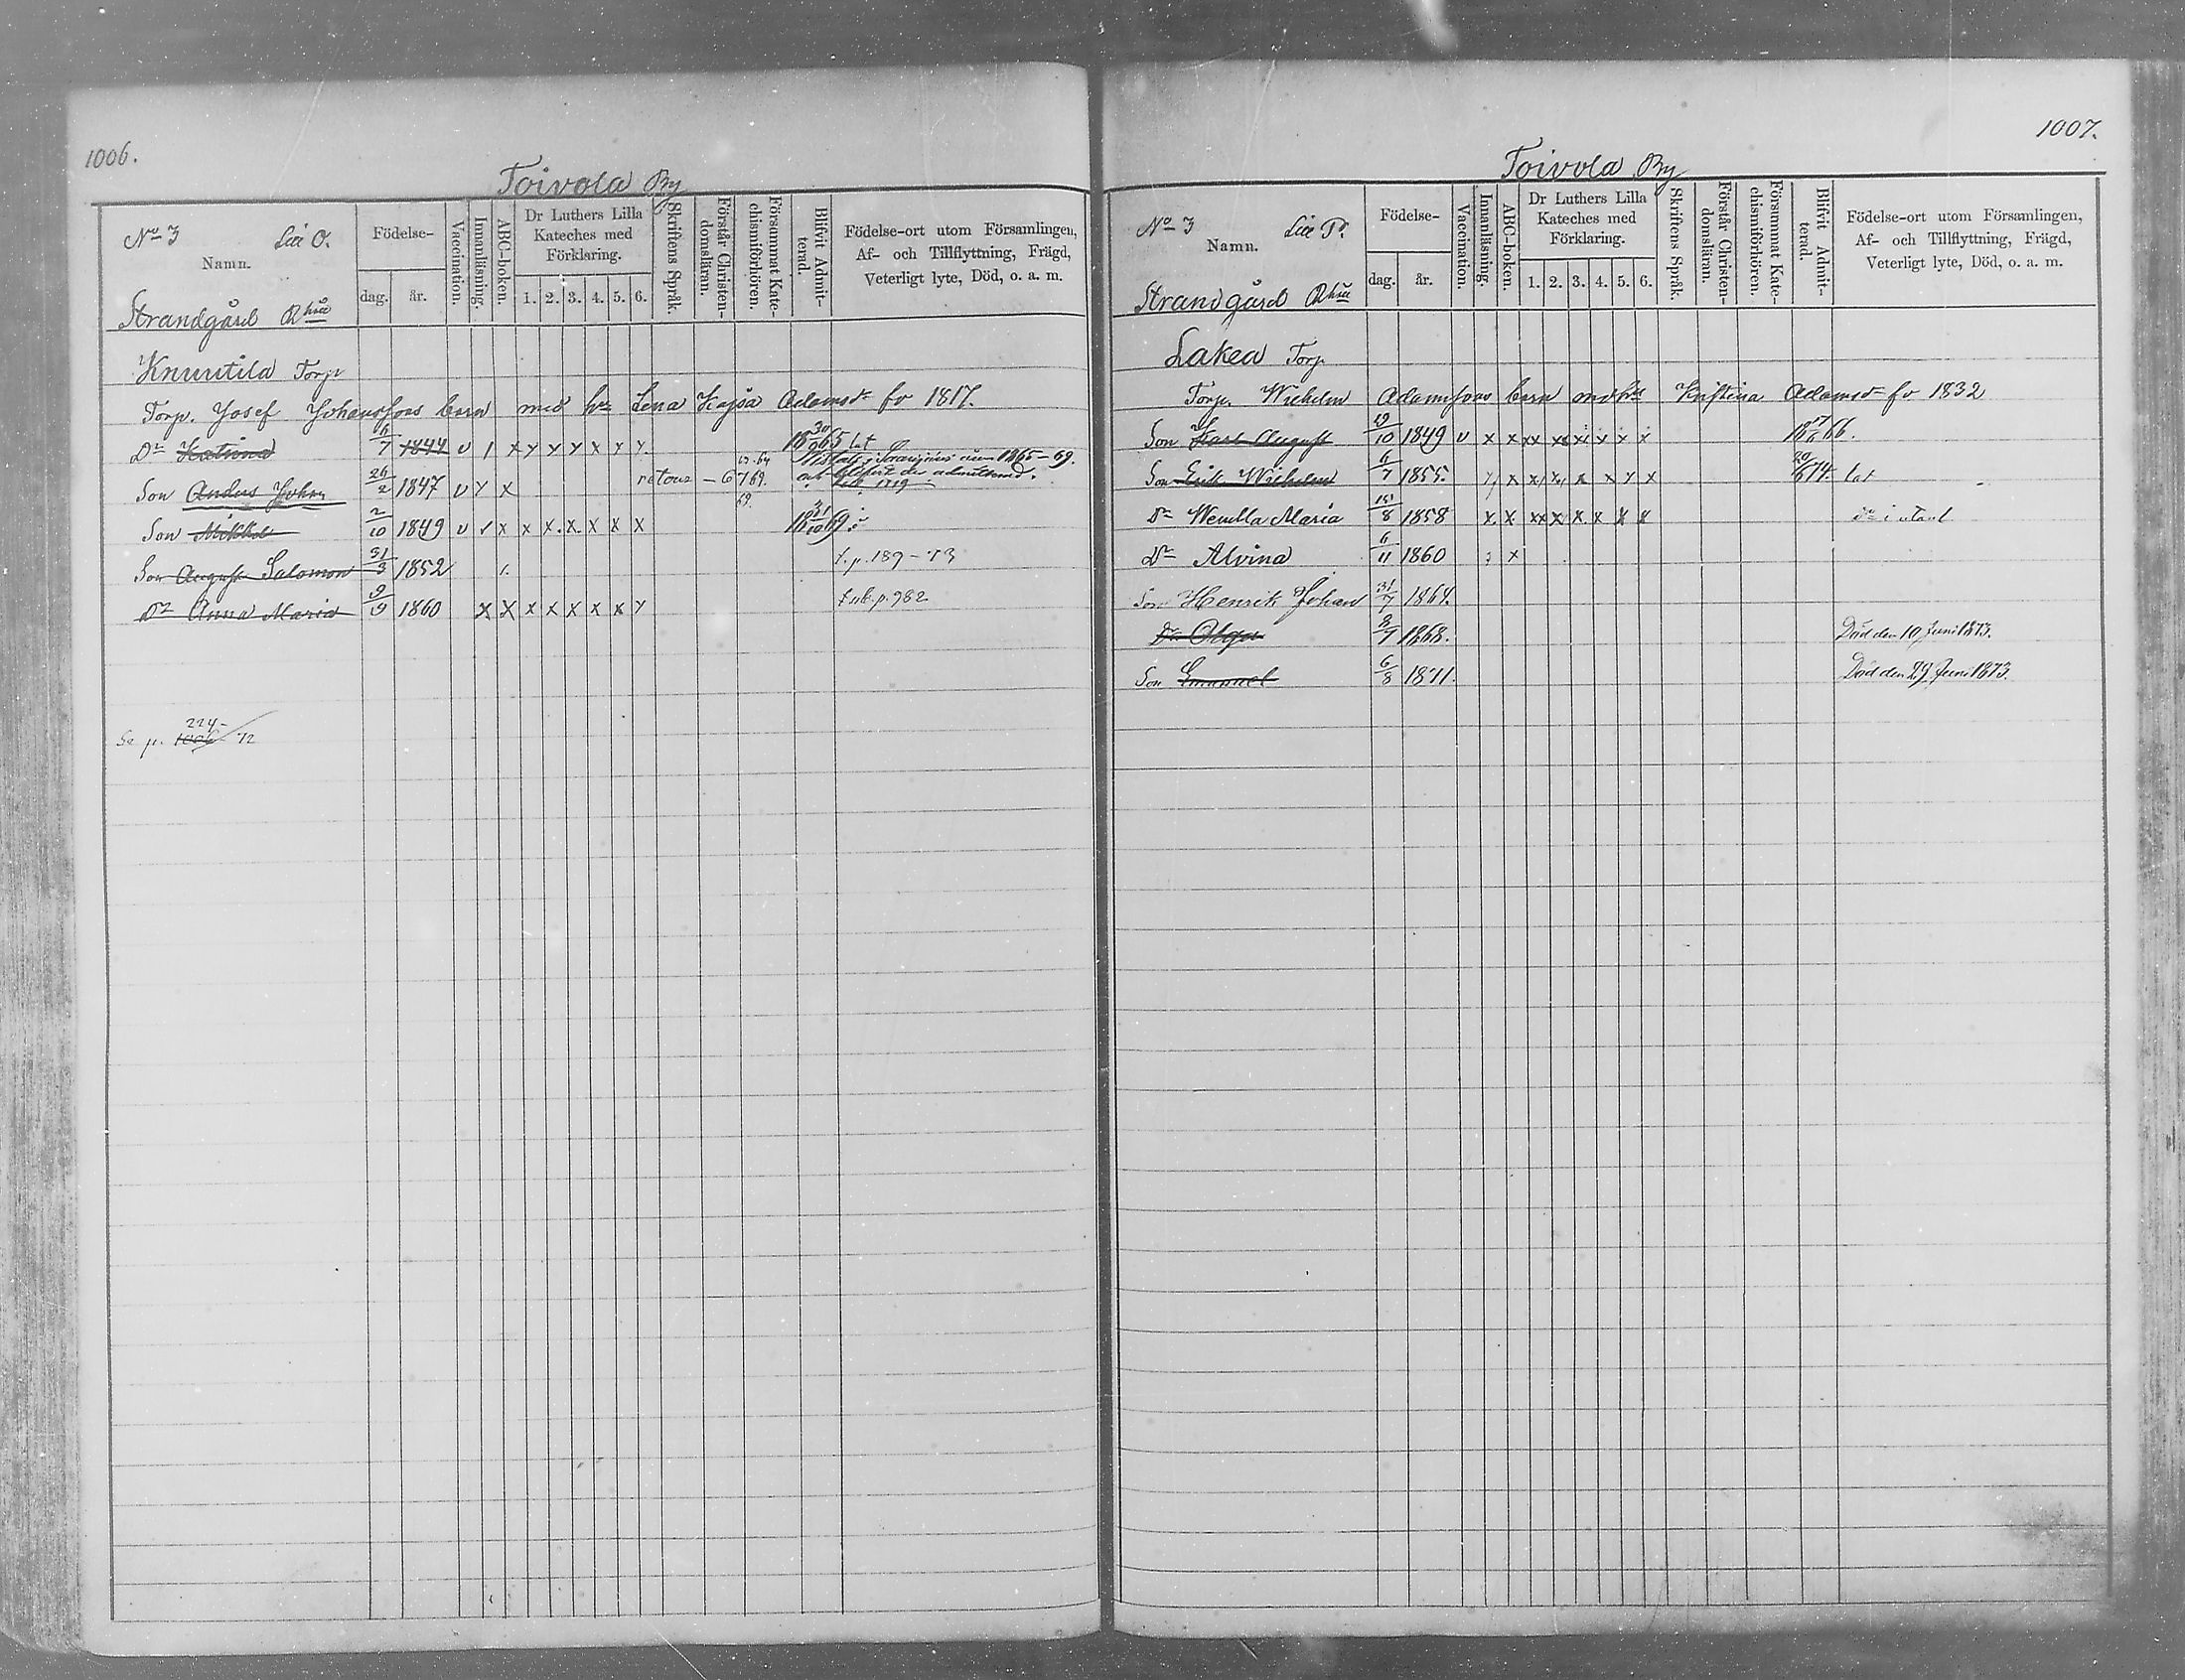 1006.
Toivola By
No 3 Litt O.
Namn.
Födelse-
dag. år.
Vaccination.
Innanläsning.
ABC-boken.
Dr Luthers Lilla
Kateches med
Förklaring.
1. 2. 3. 4. 5. 6.
Skriftens Språk.
Förstår Christen-
domsläran.
Försummat Kate-
chismiförhören.
Blifvit Admit-
terad.
Födelse-ort utom Församlingen,
Af- och Tillflyttning, Frägd,
Veterligt lyte, Död, o. a. m.
Strandgård
Knuutila Torp
Torp. Josef Johanssons barn med hu Lena Kajsa Adamsdr fo 1817.
Dr Katrina 6/7 1844 v / x y y y x y y.
Son Anders Johan 26/2 1847 v y x retour
Son Mikkel 2/10 1849 v x x x x x x x
Son August Salomon 31/3 1852 t. p. 189-73
Dr Anna Maria 9/9 1860 x x x x x x x y p. 982
Se p. 1006 224-72
1007.
Toivola By
No 3 Litt P.
Namn.
Födelse-
dag. år.
Vaccination.
Innanläsning.
ABC-boken.
Dr Luthers Lilla
Kateches med
Förklaring.
1. 2. 3. 4. 5. 6.
Skriftens Språk.
Förstår Christen-
domsläran.
Försummat Kate-
chismiförhören.
Blifvit Admit-
terad.
Födelse-ort utom Församlingen,
Af- och Tillflyttning, Frägd,
Veterligt lyte, Död, o. a. m.
Strandgård
Lakea Torp
Torp. Wilhelm Adamssons barn med hu Kristina Adamsdr fo 1832
Son Karl August 19/10 1849 v x x xx xx x x x x
Son Erik Wilhelm 6/7 1855.
Dr Wendla Maria 15/8 1858
Dr Alvina 6/11 1860
Son Henrik Johan 31/7 1864.
Dr Olga 8/7 1868. Död den 10 Juni 1873.
Son Emanuel 6/8 1871. Död den 29 Juni 1873.